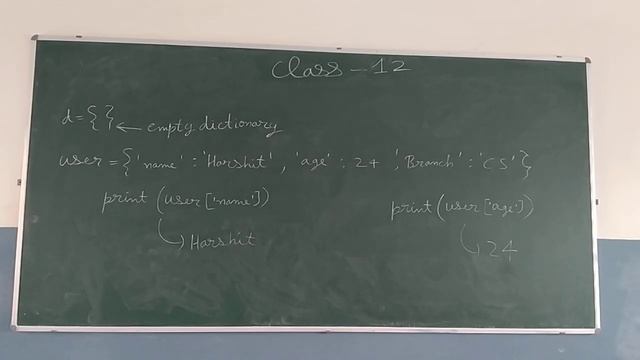 Class - 12
d = { } ← empty dictionary
user = {'name' : 'Harshit', 'age' : 24, 'Branch' : 'CS'}
print (user['name']) print (user['age'])
↳ Harshit ↳ 24